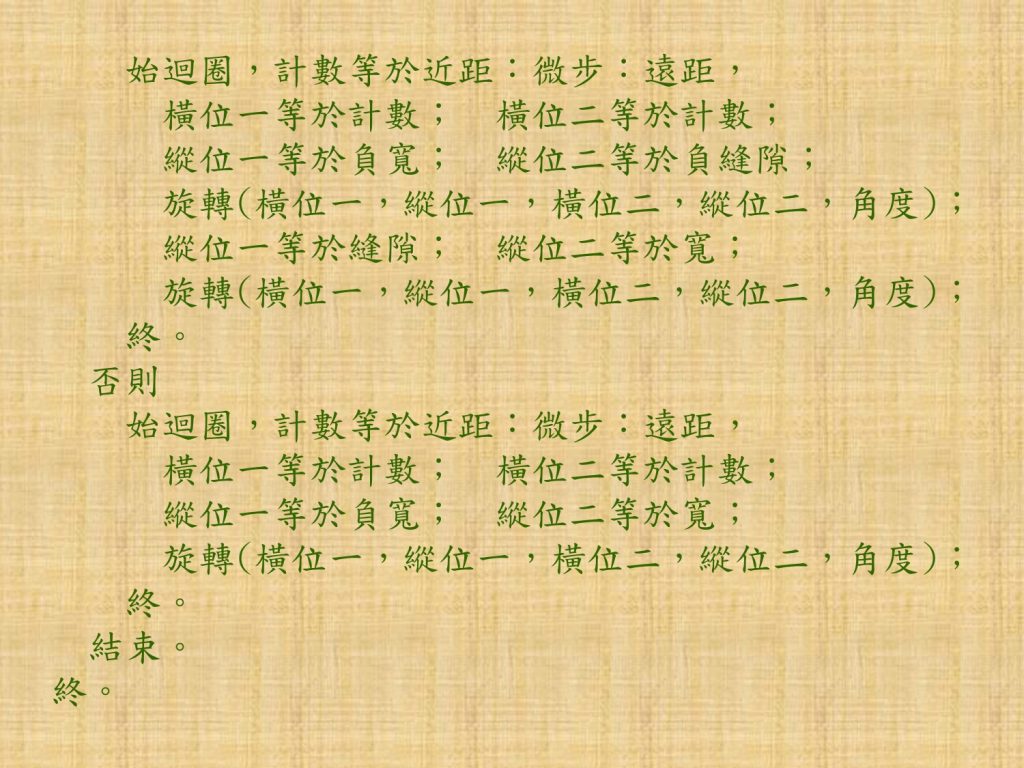 始迴圈，計數等於近距：微步：遠距，
橫位一等於計數；　橫位二等於計數；
縱位一等於負寬；　縱位二等於負縫隙；
旋轉(橫位一，縱位一，橫位二，縱位二，角度)；
縱位一等於縫隙；　縱位二等於寬；
旋轉(橫位一，縱位一，橫位二，縱位二，角度)；
終。
否則
始迴圈，計數等於近距：微步：遠距，
橫位一等於計數；　橫位二等於計數；
縱位一等於負寬；　縱位二等於寬；
旋轉(橫位一，縱位一，橫位二，縱位二，角度)；
終。
結束。
終。